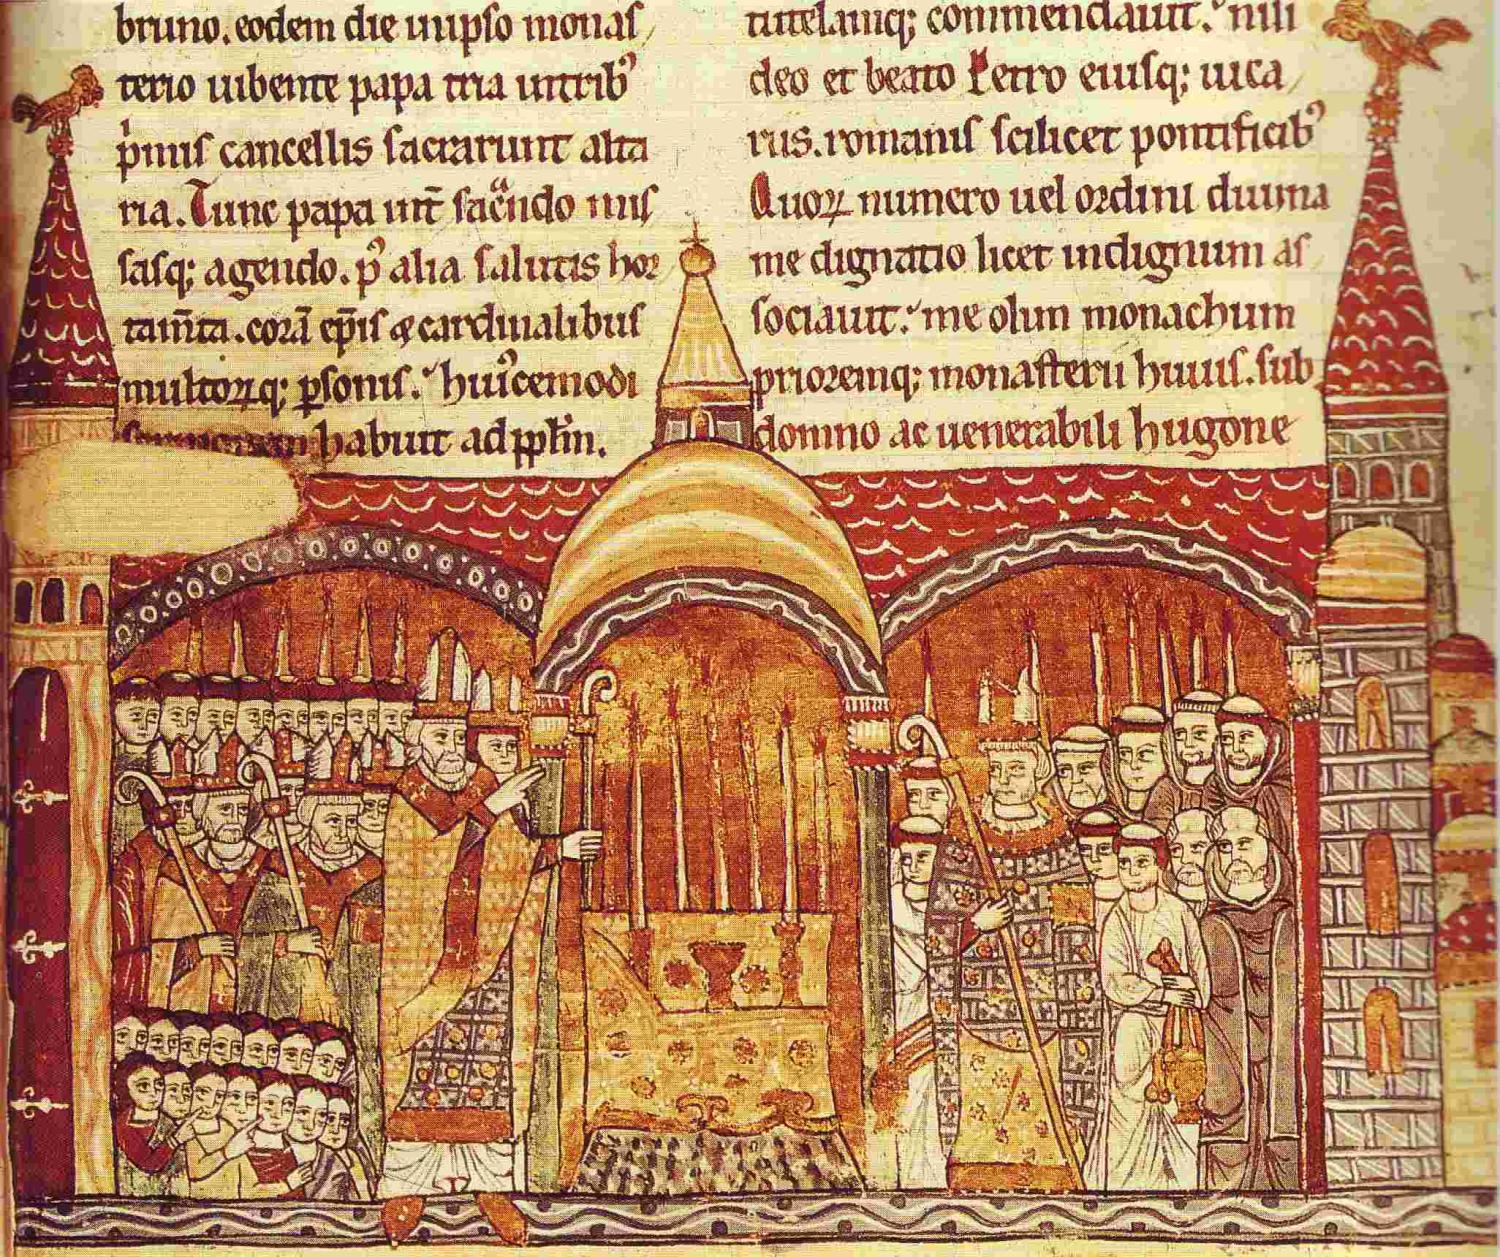 bruno. eodem die in ipso monas
terio iubente papa tria in trib᾿
p̍mis cancellis sacrarunt alta
ria. Tunc papa int̄ sac̄ndo mis
sasq; agendo. p᾿ alia salutis hor
tam̄ta. corā ep̄is ⁊ cardinalibus
multorꝝq; ꝑsonis. huı᾿cemodi
habuit ad pplm̄.
tutelamq; commendauit. nisi
deo et beato Petro eiusq; uica
rus. romanis scilicet pontificib᾿
Quoꝝ numero uel ordini diuina
me dignatio licet indignum as
sociauit. me olim monachum
prioremq; monasterii huius. sub
domno ac uenerabili hugone